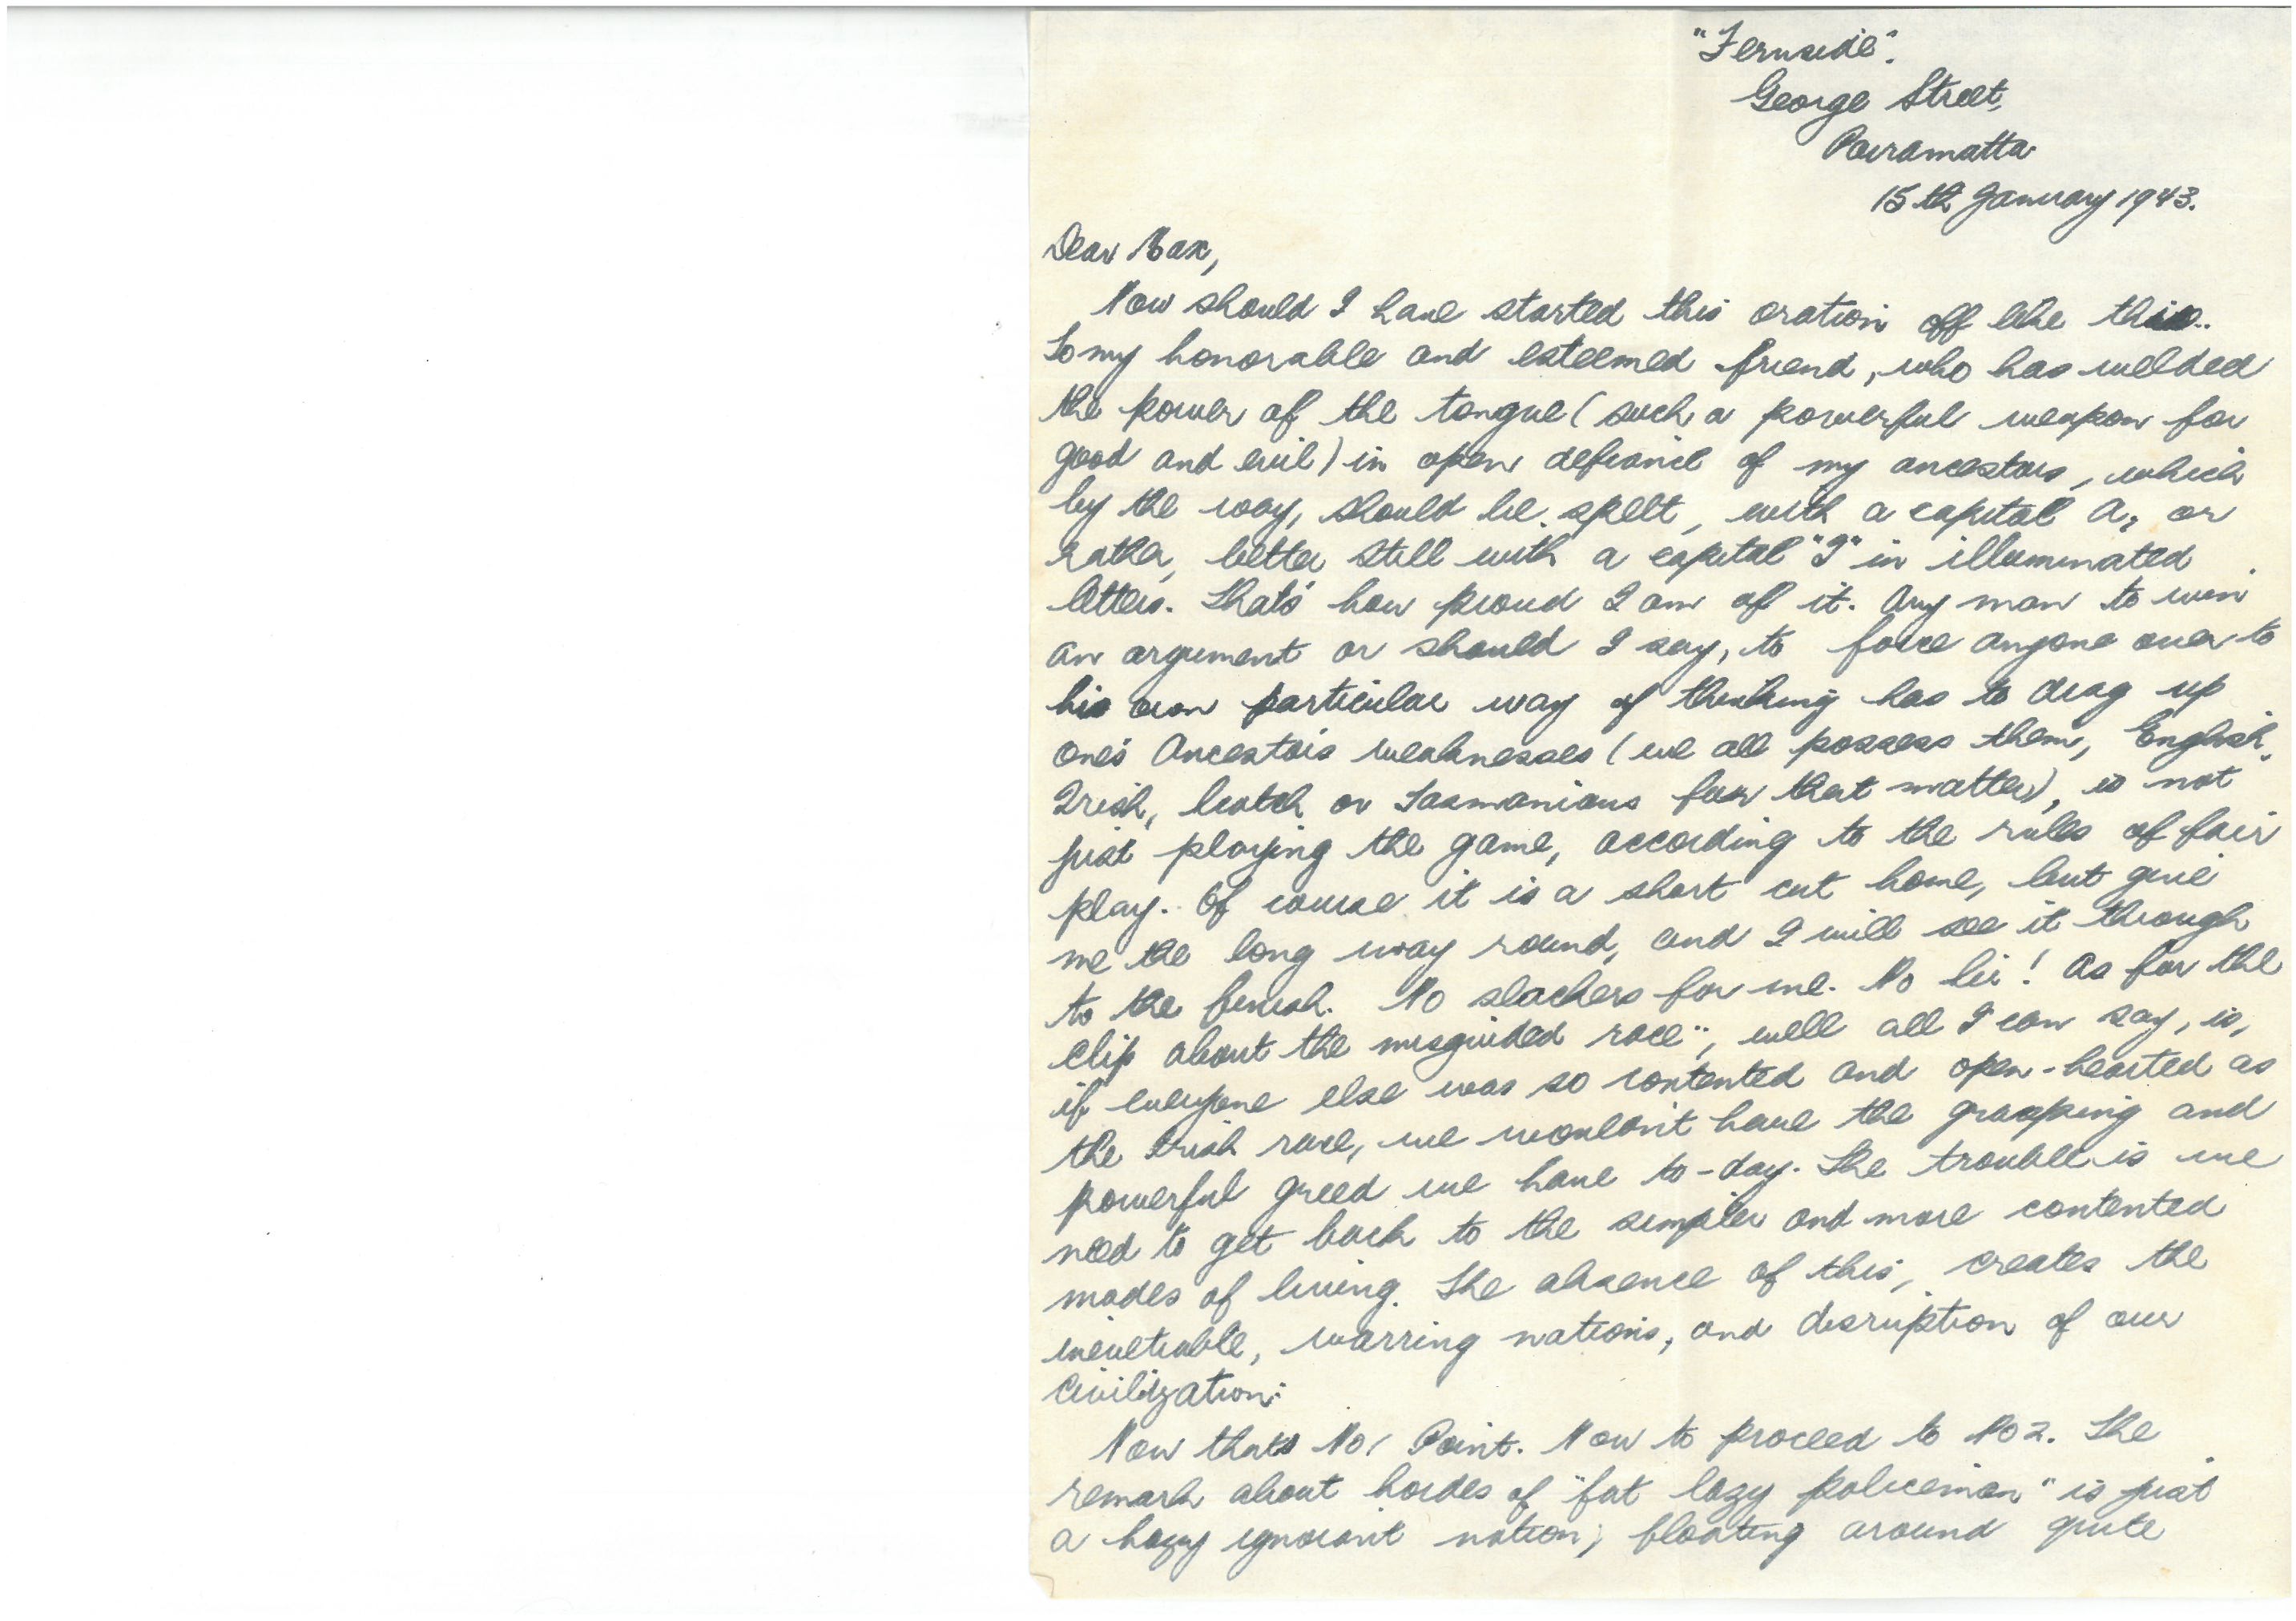 "Fernside".
George Street,
Parramatta
15th January 1943.
Dear Max,
Now should I have started this oration off like this..
To my honorable and esteemed friend, who has welded
the power of the tongue (such a powerful weapon for
good and evil) in open defiance of my ancestors, which
by the way, should be spelt, with a capital A, or
rather, better still with a capital "I" in illuminated
letters. That's how proud I am of it. Any man to win
an argument or should I say, to force anyone over to
his own particular way of thinking has to drag up
one's Ancestors weaknesses (we all possess them, English,
Irish, Scotch or Tasmanians for that matter), is not
just playing the game, according to the rules of fair
play. Of course it is a short cut home, but give
me the long way round, and I will see it through
to the finish. No slackers for me. No sir! As for the
clip about the misguided race", well all I can say, is,
if everyone else was so contented and open-hearted as
the Irish race, we wouldn't have the grasping and
powerful greed we have to-day. The trouble is we
need to get back to the simpler and more contented
modes of living. The absence of this, creates the
inevitable, warring nations, and disruption of our
civilization.
Now that's No 1 Point. Now to proceed to No 2. The
remark about hordes of "fat lazy policeman" is just
a hazy ignorant notion, floating around quite